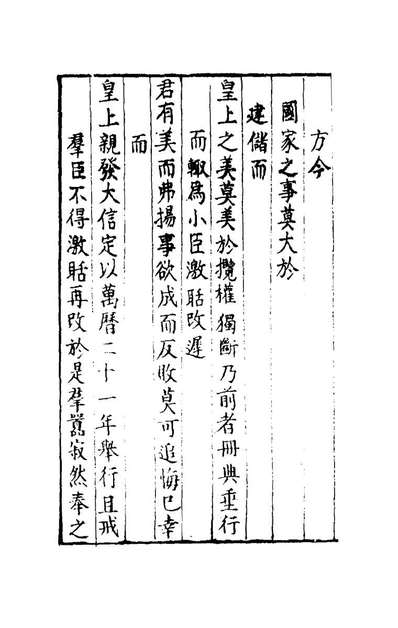 方今
國家之事莫大於
建儲而
皇上之美莫美於攬權獨斷乃前者冊典垂行
而輙爲小臣激聒改遲
君有美而弗揚事欲成而反敗莫可追悔已幸
而
皇上親發大信定以萬曆二十一年舉行且戒
羣臣不得激聒再改於是羣囂寂然奉之